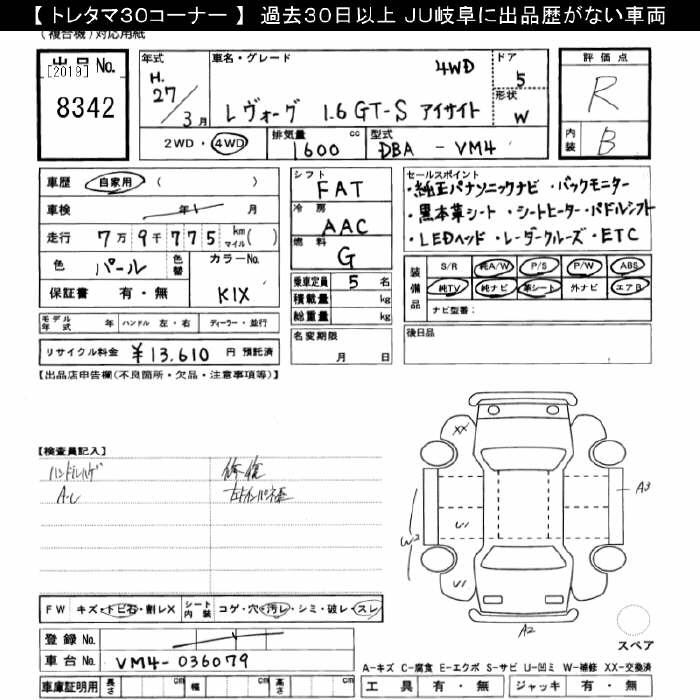 【 トレタマ30コーナー 】 過去30日以上 JU岐阜に出品歴がない車両
(複合機)対応用紙
出品 No.
[2019]
8342
年式
H.
27/3月
車名・グレード
4WD
レヴォーグ 1.6 GT-S アイサイト
ドア
5
形状
W
評価点
R
内装
B
2WD・4WD
排気量
1600 cc
型式
DBA - VM4
車歴 自家用 ( )
車検 年 月
走行 7万9千775 km マイル( )
色 パール 色替 カラーNo.
K1X
保証書 有・無
モデル年式 年 ハンドル 左・右 ディーラー・並行
リサイクル料金 ¥13,610 円 預託済
シフト
FAT
冷房
AAC
燃料
G
乗車定員 5 名
積載量 kg
総重量 kg
名変期限
月 日
セールスポイント
・純正パナソニックナビ ・バックモニター
・黒本革シート ・シートヒーター ・パドルシフト
・LEDヘッド ・レーダークルーズ ・ETC
装備品
S/R 純A/W P/S P/W ABS
純TV 純ナビ 革シート 外ナビ エアB
ナビ型番:
後日品
【出品店申告欄(不良箇所・欠品・注意事項等)】
【検査員記入】
ハンドルハゲ
A・U
修復
XX
U1
W2
U1
A3
A2
スペア
FW キズ・トビ石・割レX シート内装 コゲ・穴・汚レ・シミ・破レ・スレ
登録 No.
車台 No. VM4-036079
車庫証明用 長さ cm 幅 cm 高さ cm
A-キズ C-腐食 E-エクボ S-サビ U-凹ミ W-補修 XX-交換済
工具 有・無 ジャッキ 有・無